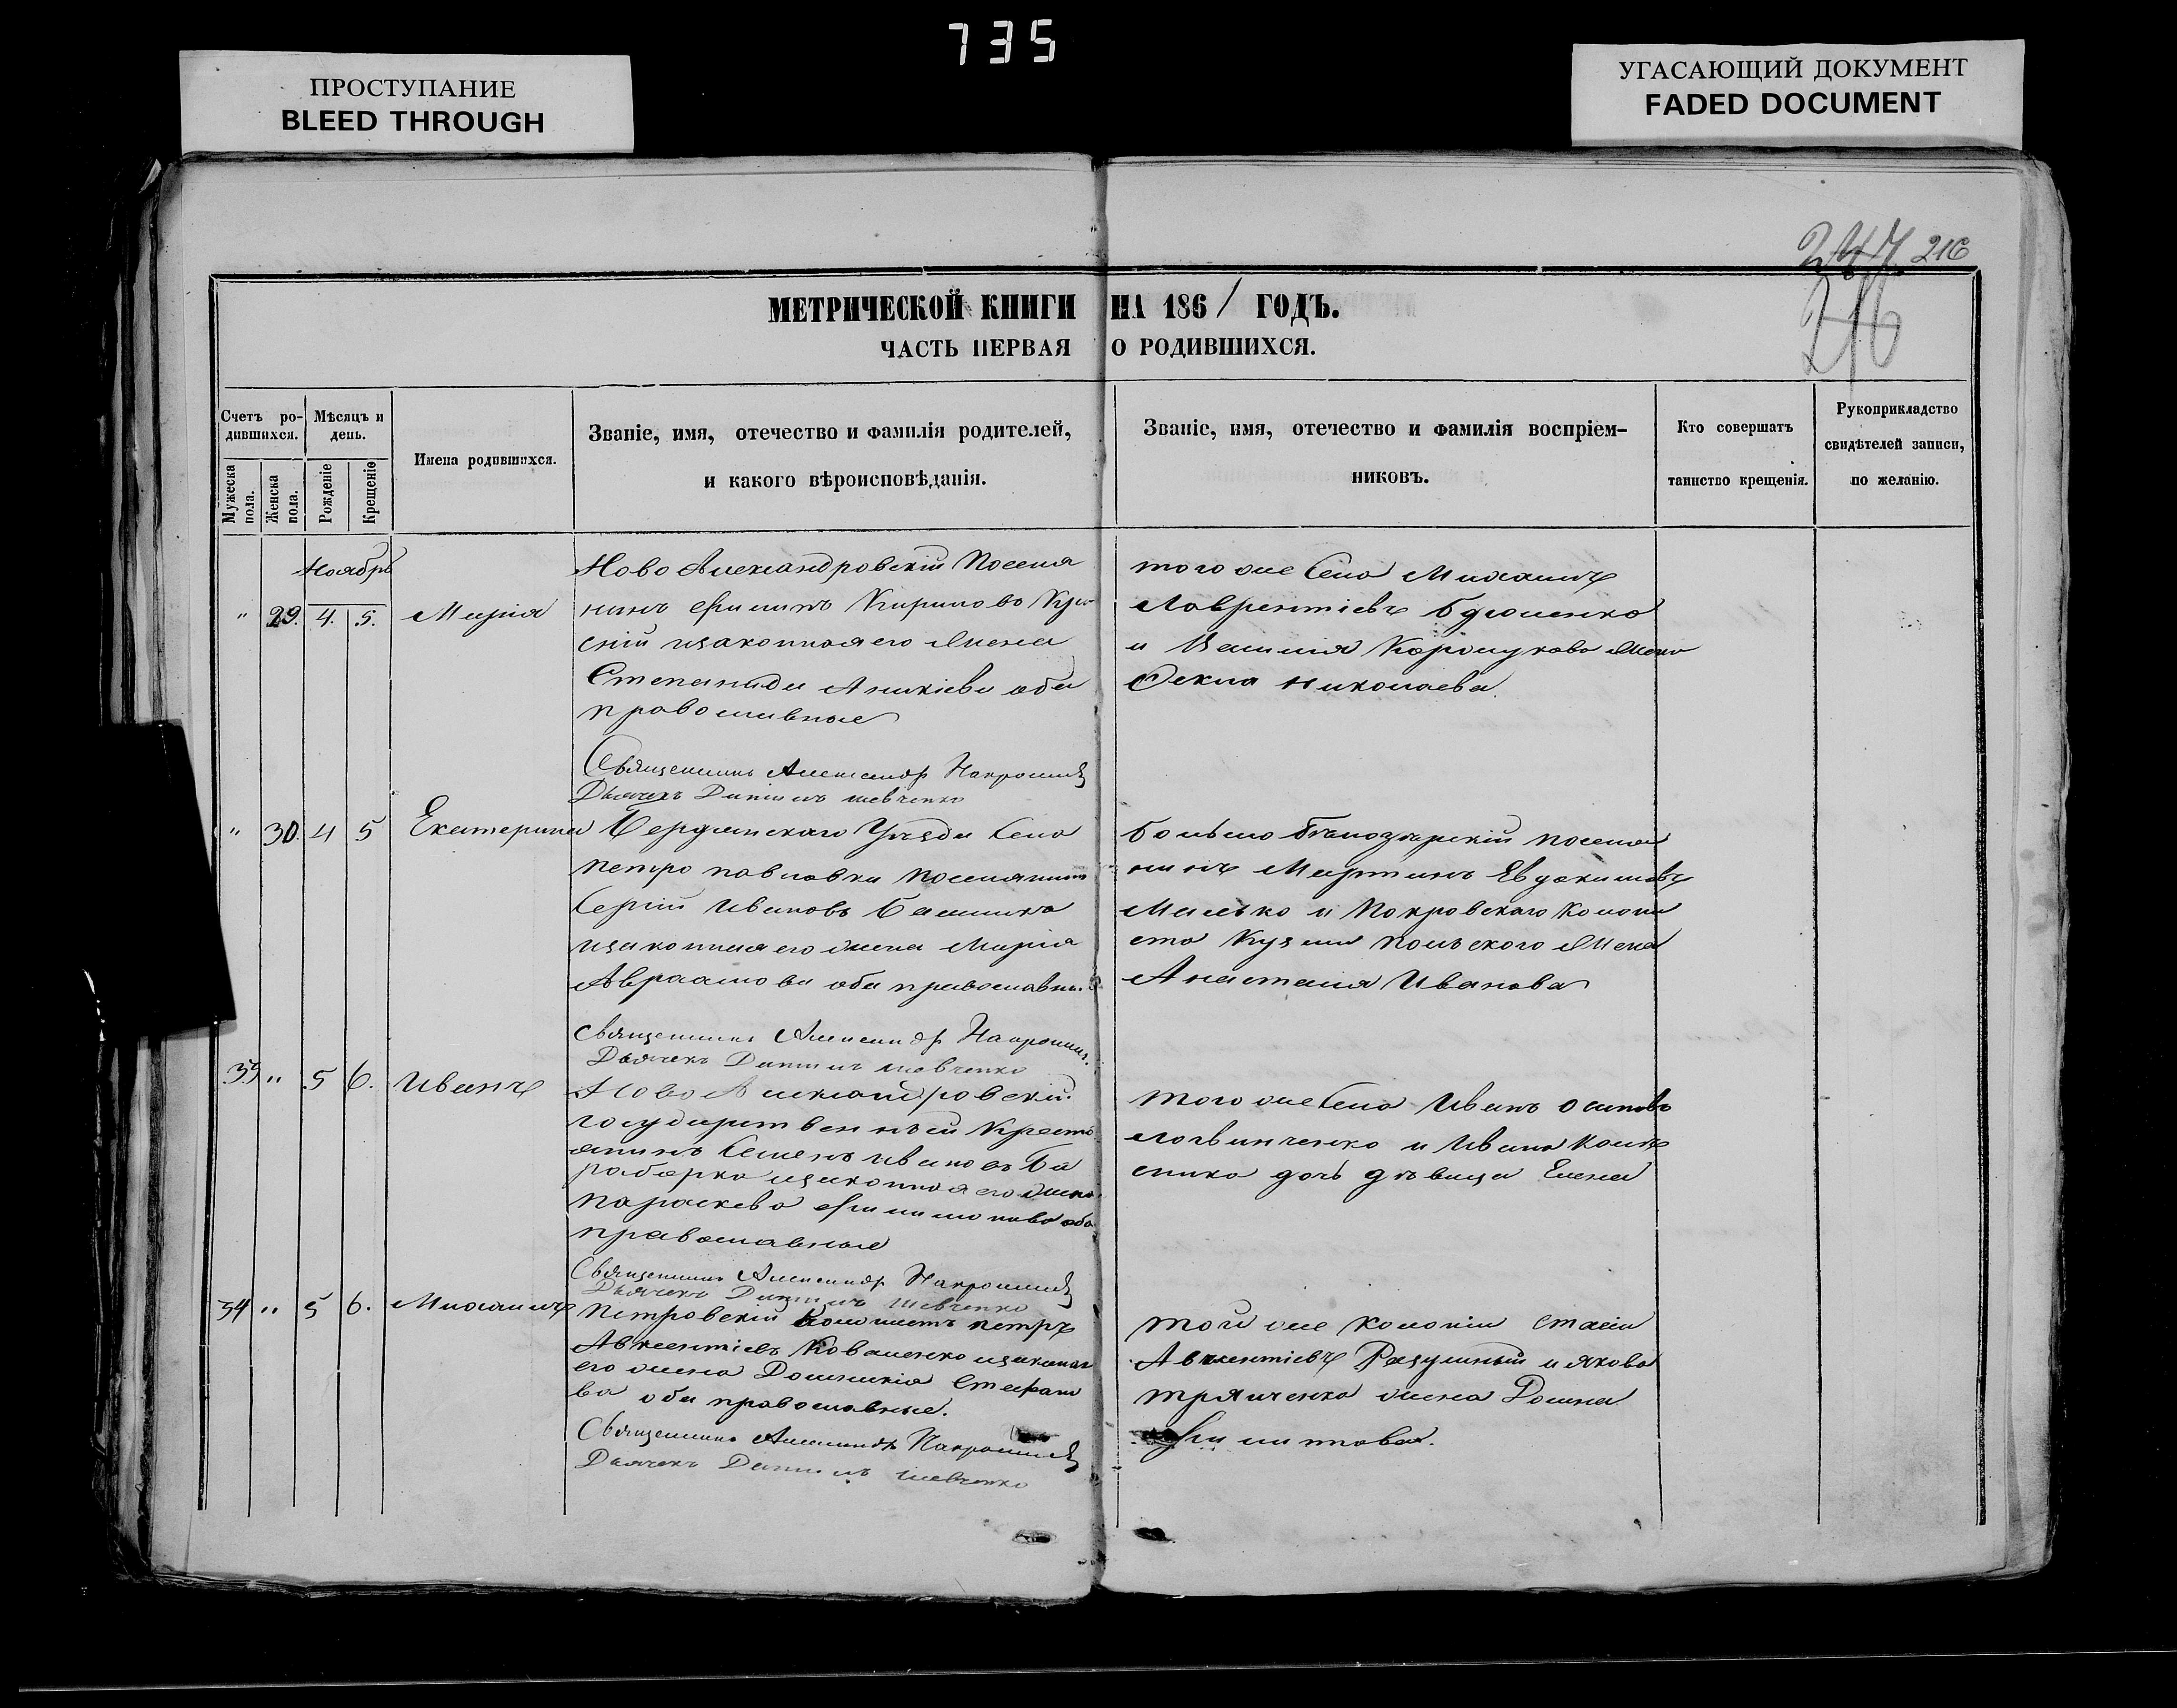 735
ПРОСТУПАНИЕ
BLEED THROUGH
УГАСАЮЩИЙ ДОКУМЕНТ
FADED DOCUMENT
247 216
216
МЕТРИЧЕСКОЙ КНИГИ НА 1861 ГОДЪ.
ЧАСТЬ ПЕРВАЯ О РОДИВШИХСЯ.
Счетъ ро-
дившихся.
Мужеска
пола.
Женска
пола.
Мѣсяцъ и
день.
Рожденіе
Крещеніе
Имена родившихся.
Званіе, имя, отечество и фамилія родителей,
и какого вѣроисповѣданія.
Званіе, имя, отечество и фамилія воспріем-
никовъ.
Кто совершатъ
таинство крещенія.
Рукоприкладство
свидѣтелей записи,
по желанію.
Ноябрь
" 29. 4. 5. Марія
Ново Александровскій Поселя
нинъ Филипъ Кириловъ
изаконная его жена
Степанида Аникіева оба
православные
Священникъ Александр
Дьячекъ Данилъ Шевченко
того же Села Михаилъ
Лаврентіевъ
и жена
Фекла Николаева.
" 30. 4 5 Екатерина
Бердянскаго Уѣзда Села
Петро павловки Поселянинъ
Сергій Ивановъ
изаконная его жена Марія
Авраамова оба православны.
Священникъ Александр
Дьячекъ Данилъ Шевченко
Больше Бѣлозѣрскій поселя
нинъ Мартинъ Евдокимовъ
Малько и Покровскаго Колони
ста Кузми Польского Жена
Анастасія Иванова
35 " 5 6. Иванъ
Ново Александровскій
государственный Кресть
янинъ Семенъ Ивановъ Ба
изаконная его жена
Параскева Филимонова оба
православные
Священникъ Александр
Дьячекъ Данилъ Шевченко
того же Села Иванъ Осиповъ
Логвинченко и Ивана
дочь дѣвица Елена
34 " 5 6. Михаилъ
Петровскій Колонистъ Петръ
Авксентіевъ Коваленко изаконая
его жена Домникія Стефано
ва оба православные.
Священникъ Александр
Дьячекъ Данилъ Шевченко
той же Колоніи
Авксентіевъ Разумный и Якова
жена Домна